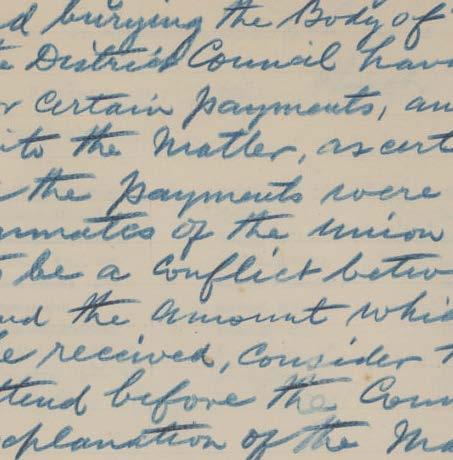 d burying the Body of
e District Council hav
r certain payments, an
ito the Matter, as cert
the payments were
nmates of the union
be a conflict betw
nd the amount whi
e received, consider t
ttend before the Com
xplanation of the Ma